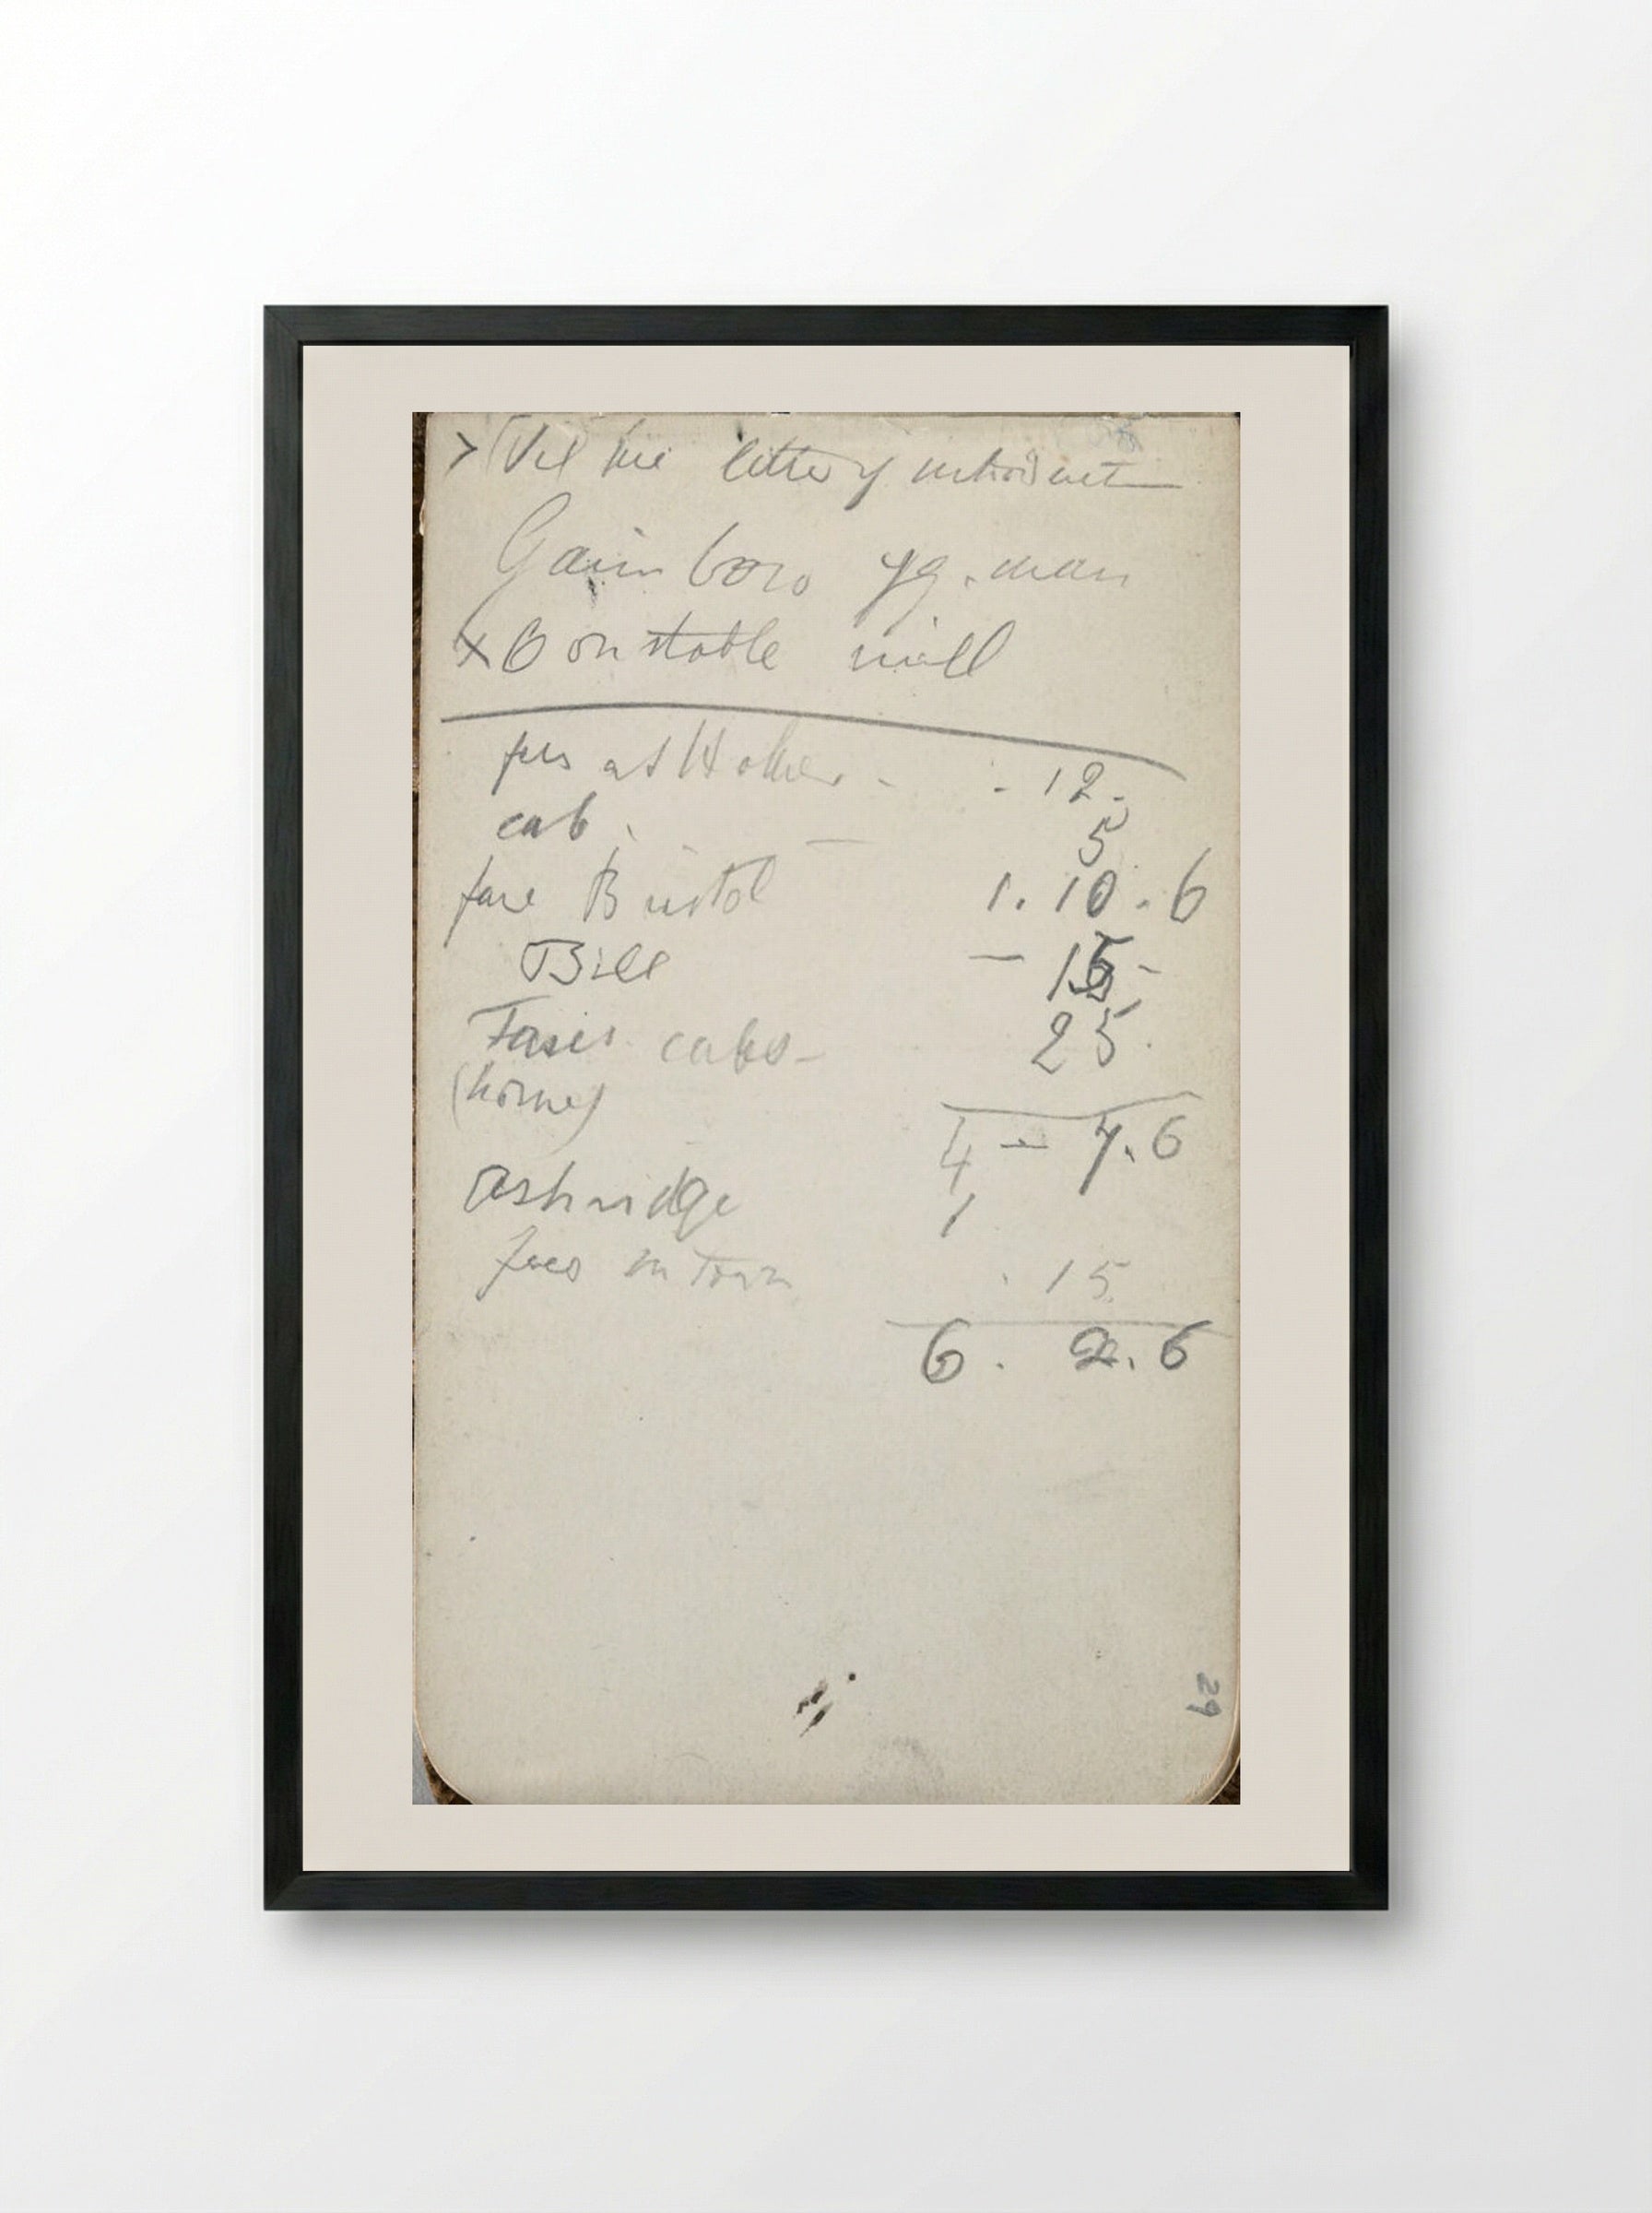 letter of introduct
Gainboro yg. man
x Constable mill
fees at Holker - - 12 -
cab. - 5
fare Bristol 1. 10. 6
Bill - 15 -
Taxis cabs - 25.
(home)
4 - 7. 6
Ashridge 1
fees in town . 15
6 . 2. 6
29